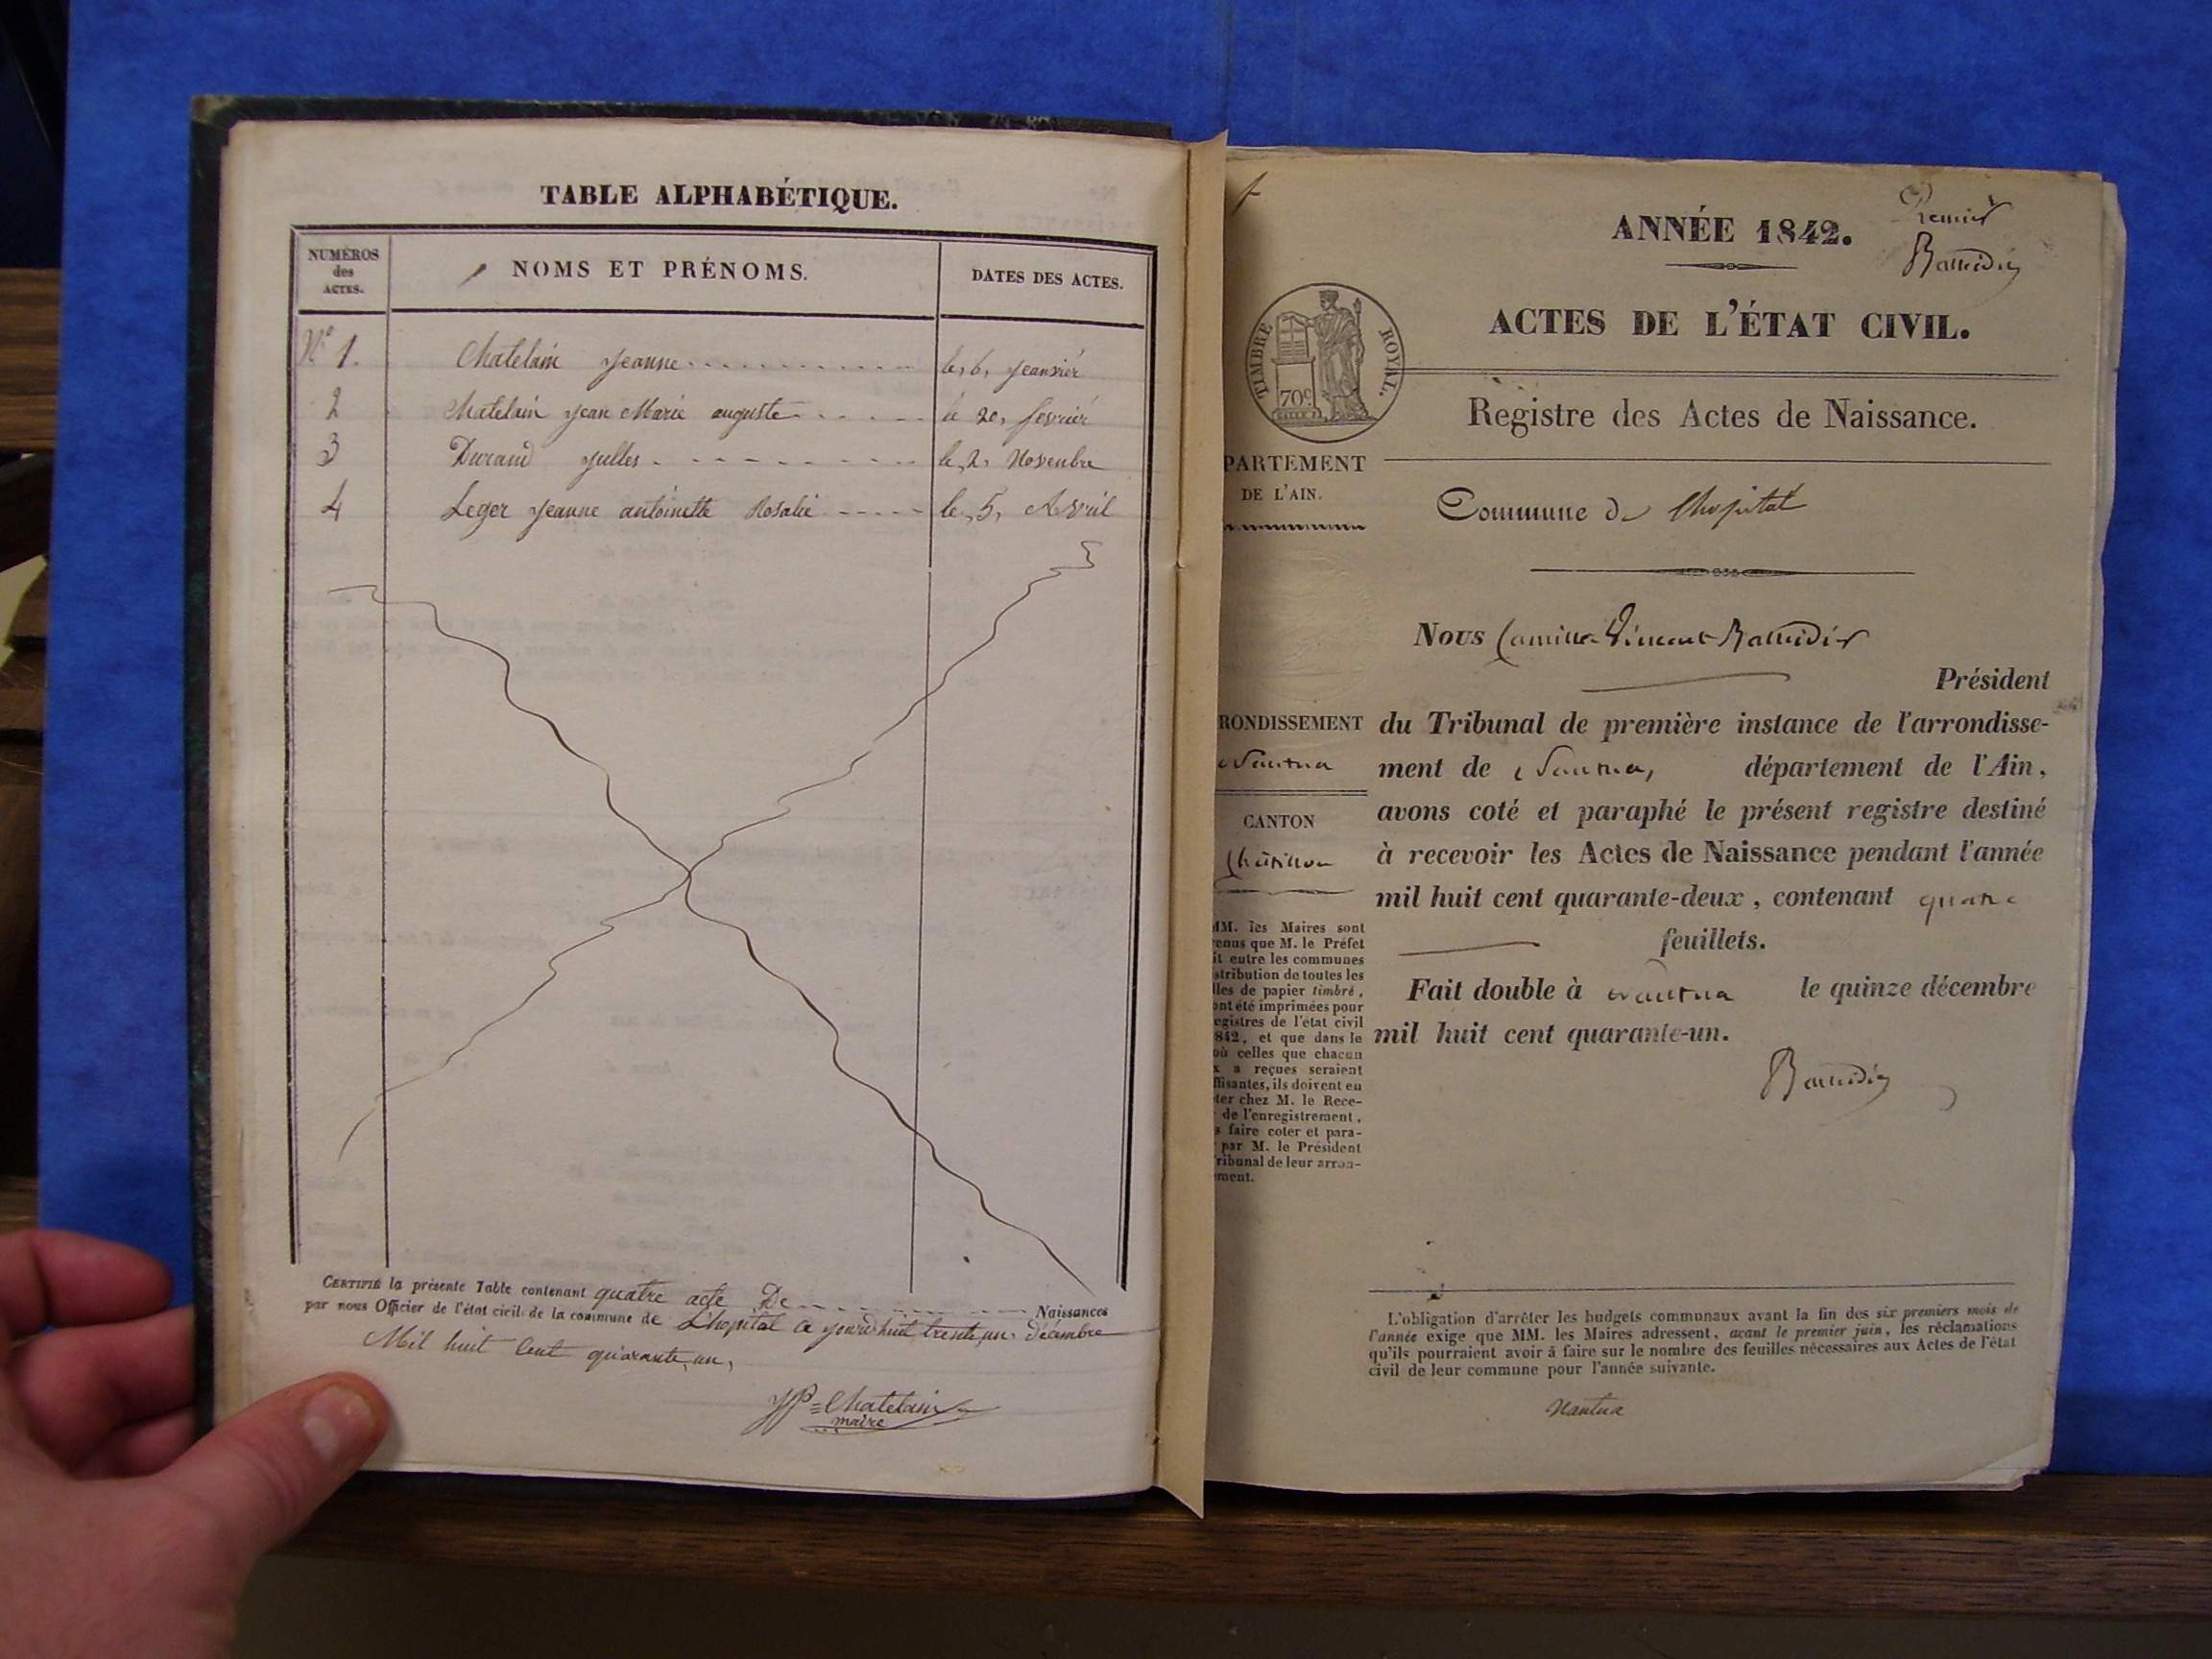 TABLE ALPHABÉTIQUE.
NUMÉROS
des
ACTES.
NOMS ET PRÉNOMS.
DATES DES ACTES.
N° 1. Chatelain Jeanne le, 6, jeanvier
2 Chatelain Jean Marie auguste le 20, fevrier
3 Durand Julles le, 2, Novenbre
4 Leger Jeanne antoinette Rosalie le, 5, Avril
CERTIFIÉ la présente Table contenant quatre acte De Naissances
par nous Officier de l'état civil de la commune de L'hopital ce jourd'huit trente, un, décembre
Mil huit Cent quarante, un,
JP = Chatelain
maire
Premier
ANNÉE 1842.
ACTES DE L'ÉTAT CIVIL.
TIMBRE ROYAL.
70c
Registre des Actes de Naissance.
PARTEMENT
DE L'AIN.
Commune de Lhopital
Nous Camille Vincent
Président
RONDISSEMENT
Nantua
du Tribunal de première instance de l'arrondisse-
ment de Nantua, département de l'Ain,
avons coté et paraphé le présent registre destiné
à recevoir les Actes de Naissance pendant l'année
mil huit cent quarante-deux, contenant quatre
feuillets.
Fait double à Nantua le quinze décembre
mil huit cent quarante-un.
CANTON
Châtillon
MM. les Maires sont
enus que M. le Préfet
it entre les communes
stribution de toutes les
lles de papier timbré,
ont été imprimées pour
egistres de l'état civil
842, et que dans le
où celles que chacun
x a reçues seraient
ffisantes, ils doivent en
ter chez M. le Rece-
de l'enregistrement,
s faire coter et para-
par M. le Président
ribunal de leur arron-
ment.
L'obligation d'arrêter les budgets communaux avant la fin des six premiers mois de
l'année exige que MM. les Maires adressent, avant le premier juin, les réclamations
qu'ils pourraient avoir à faire sur le nombre des feuilles nécessaires aux Actes de l'état
civil de leur commune pour l'année suivante.
Nantua